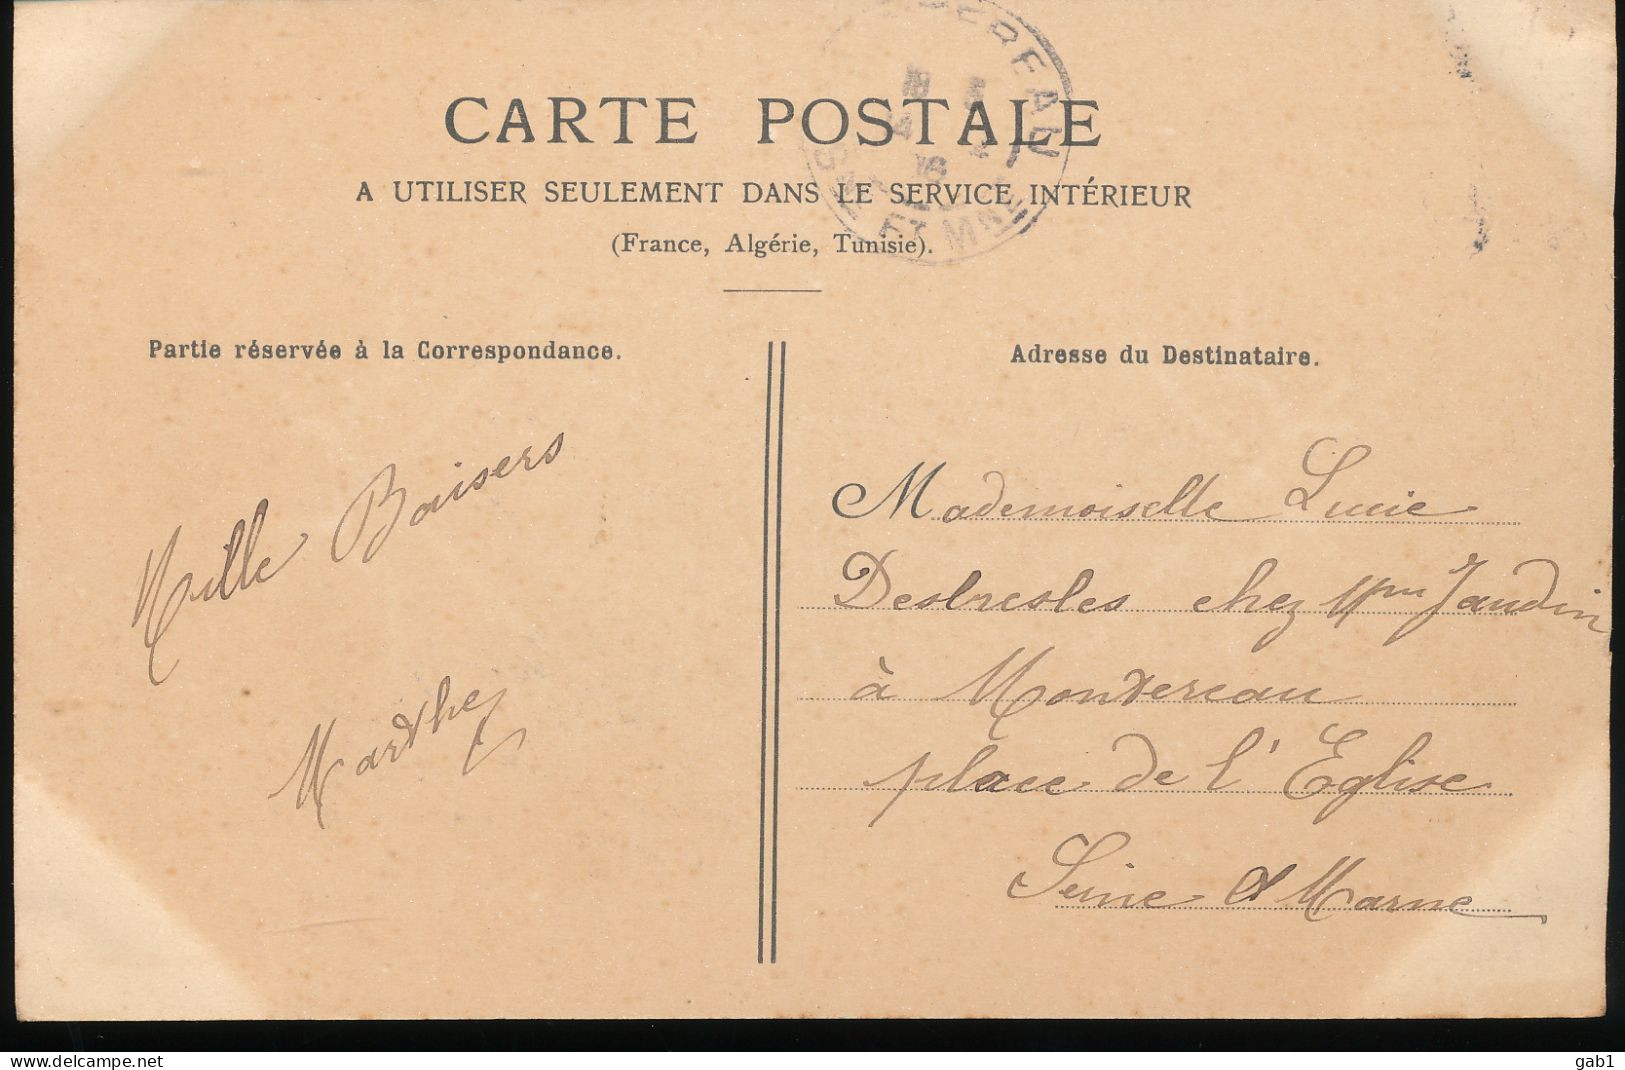 CARTE POSTALE
A UTILISER SEULEMENT DANS LE SERVICE INTÉRIEUR
(France, Algérie, Tunisie).
Partie réservée à la Correspondance.
Mille Baisers
Marthe
Adresse du Destinataire.
Mademoiselle Lucie
Desbresles chez Mme Jaudin
à Montereau
place de l'Eglise
Seine & Marne
ET M
gab1